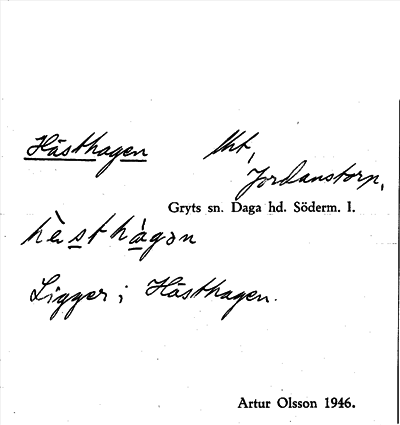 Hästhagen
Jordanstorp,
Gryts sn. Daga hd. Söderm. l.
hɛ̀sthàgən
Ligger i Hästhagen.
Artur Olsson 1946.